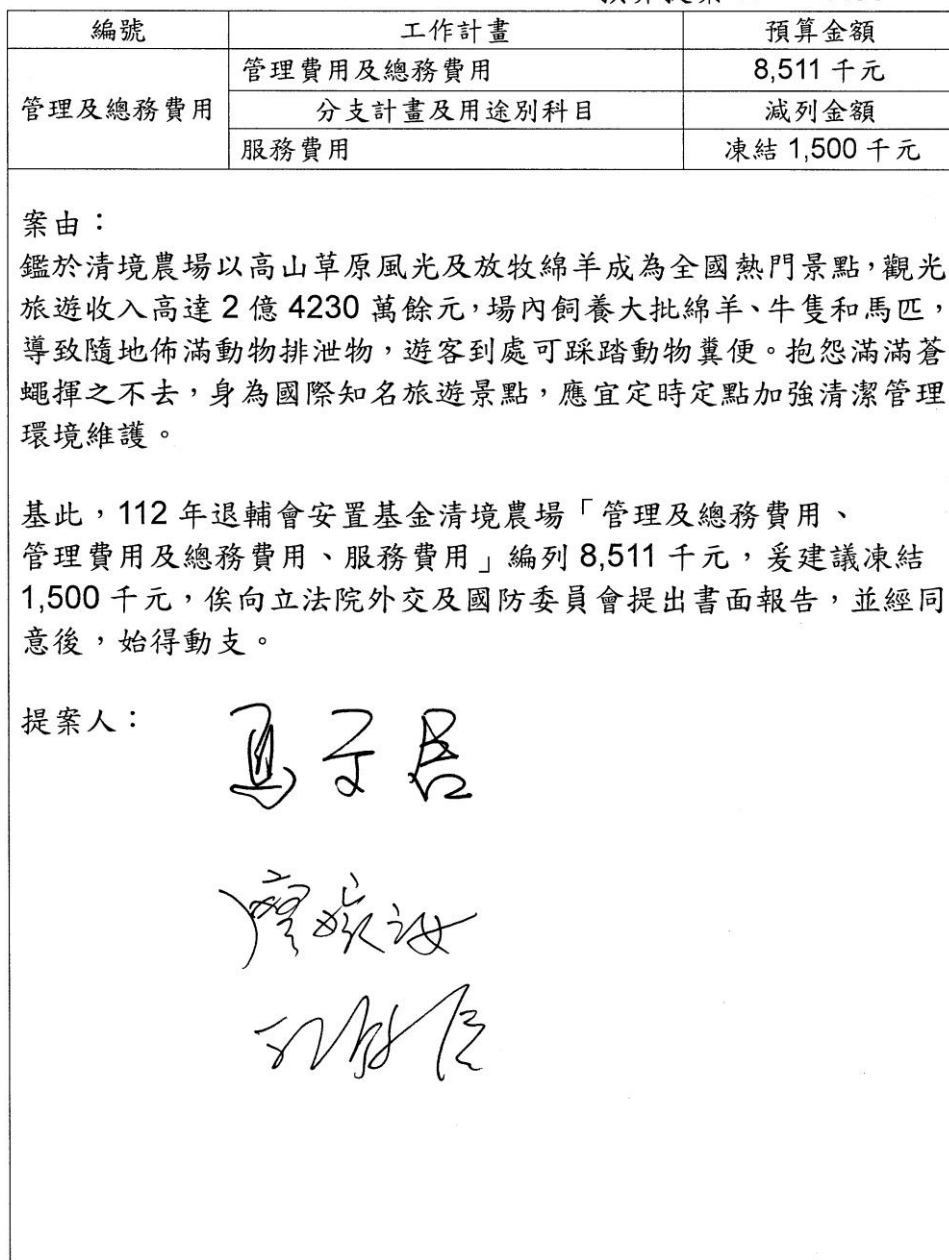 編號 工作計畫 預算金額
管理及總務費用 管理費用及總務費用 8,511 千元
分支計畫及用途別科目 減列金額
服務費用 凍結 1,500 千元
案由：
鑑於清境農場以高山草原風光及放牧綿羊成為全國熱門景點，觀光
旅遊收入高達 2 億 4230 萬餘元，場內飼養大批綿羊、牛隻和馬匹，
導致隨地佈滿動物排泄物，遊客到處可踩踏動物糞便。抱怨滿滿蒼
蠅揮之不去，身為國際知名旅遊景點，應宜定時定點加強清潔管理
環境維護。
基此，112 年退輔會安置基金清境農場「管理及總務費用、
管理費用及總務費用、服務費用」編列 8,511 千元，爰建議凍結
1,500 千元，俟向立法院外交及國防委員會提出書面報告，並經同
意後，始得動支。
提案人：
馬文君